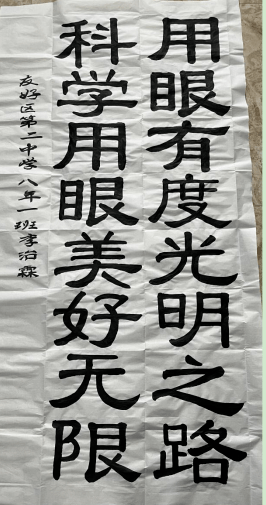 用眼有度光明之路
科学用眼美好无限
友好区第二中学八年一班李治霖